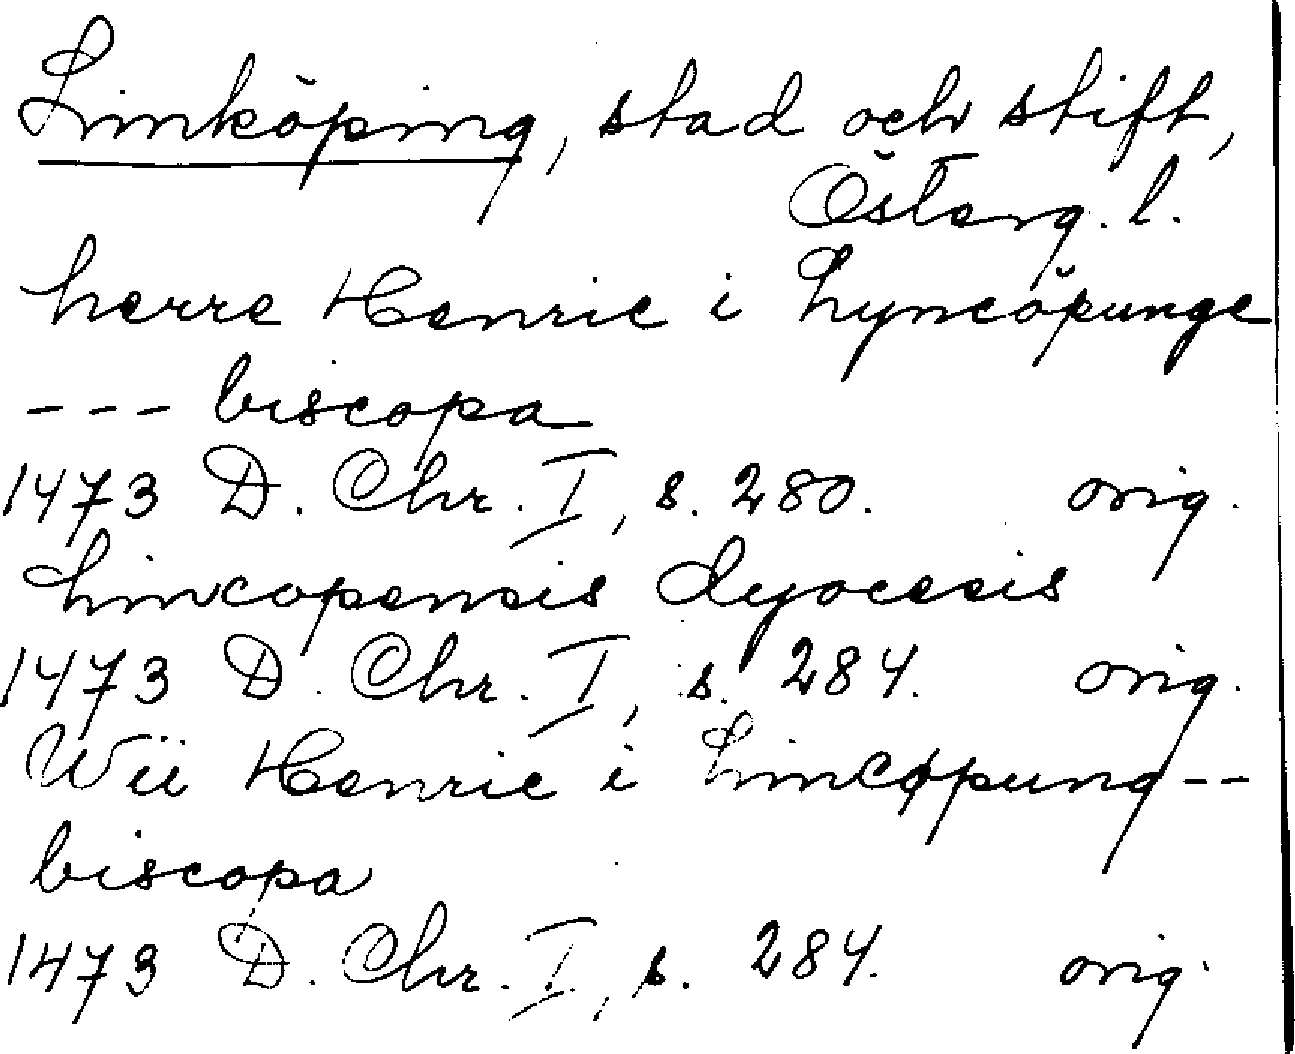 Linköping, stad och stift,
Österg. l.
herre Henric i Lyncöpunge
--- biscopa
1473 D. Chr. I, s. 280. orig.
Lincopensis dyocesis
1473 D. Chr. I, s. 284. orig.
Wii Henric i Lincøpung --
biscopa
1473 D. Chr. I, s. 284. orig.